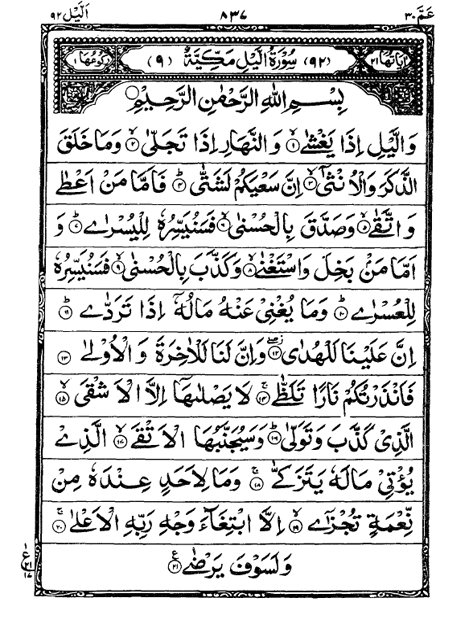 عم ٣٠ ٨٣٧ اليل ٩٢
اياتها ٢١ (٩٢) سُوْرَةُ الَّيْلِ مَكِّيَّةٌ (٩) ركوعها ١
بِسْمِ اللهِ الرَّحْمٰنِ الرَّحِيْمِ
وَالَّيْلِ اِذَا يَغْشٰى ۙ‏﴿۱﴾ وَالنَّهَارِ اِذَا تَجَلّٰى ۙ‏﴿۲﴾ وَمَا خَلَقَ
الذَّكَرَ وَالْاُنْثٰٓى ۙ‏﴿۳﴾ اِنَّ سَعْيَكُمْ لَشَتّٰى ؕ‏﴿۴﴾ فَاَمَّا مَنْ اَعْطٰى
وَاتَّقٰى ۙ‏﴿۵﴾ وَصَدَّقَ بِالْحُسْنٰى ۙ‏﴿۶﴾ فَسَنُيَسِّرُهٗ لِلْيُسْرٰى ؕ‏﴿۷﴾ وَ
اَمَّا مَنْۢ بَخِلَ وَاسْتَغْنٰى ۙ‏﴿۸﴾ وَكَذَّبَ بِالْحُسْنٰى ۙ‏﴿۹﴾ فَسَنُيَسِّرُهٗ
لِلْعُسْرٰى ؕ‏﴿۱۰﴾ وَمَا يُغْنِىْ عَنْهُ مَالُهٗٓ اِذَا تَرَدّٰى ؕ‏﴿۱۱﴾
اِنَّ عَلَيْنَا لَلْهُدٰى ۖ‏﴿۱۲﴾ وَاِنَّ لَنَا لَلْاٰخِرَةَ وَالْاُوْلٰى ‏﴿۱۳﴾
فَاَنْذَرْتُكُمْ نَارًا تَلَظّٰى ۚ‏﴿۱۴﴾ لَا يَصْلٰىهَآ اِلَّا الْاَشْقَى ۙ‏﴿۱۵﴾
الَّذِىْ كَذَّبَ وَتَوَلّٰى ؕ‏﴿۱۶﴾ وَسَيُجَنَّبُهَا الْاَتْقَى ۙ‏﴿۱۷﴾ الَّذِىْ
يُؤْتِىْ مَالَهٗ يَتَزَكّٰى ۚ‏﴿۱۸﴾ وَمَا لِاَحَدٍ عِنْدَهٗ مِنْ
نِّعْمَةٍ تُجْزٰٓى ۙ‏﴿۱۹﴾ اِلَّا ابْتِغَآءَ وَجْهِ رَبِّهِ الْاَعْلٰى ۚ‏﴿۲۰﴾
وَلَسَوْفَ يَرْضٰى ‏﴿۲۱﴾
١
ع
٢١
١٧